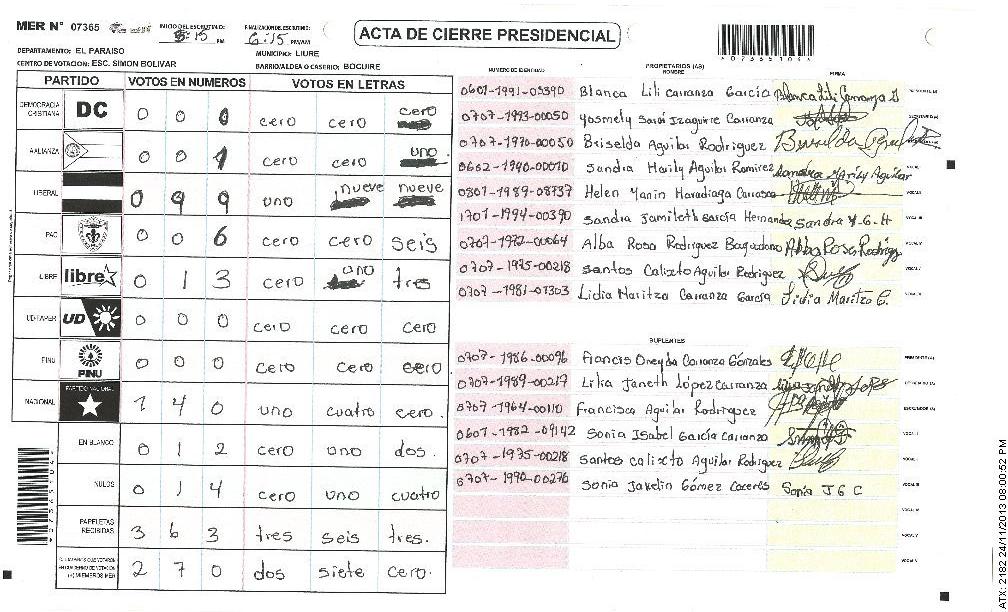 MER N° 07365
INICIO DEL ESCRUTINIO: 5:15 PM
FINALIZACION DEL ESCRUTINIO: 6:15 PM/AM
ACTA DE CIERRE PRESIDENCIAL
DEPARTAMENTO: EL PARAISO
MUNICIPIO: LIURE
CENTRO DE VOTACION: ESC. SIMON BOLIVAR
BARRIO/ALDEA O CASERIO: BOCUIRE
PARTIDO VOTOS EN NUMEROS VOTOS EN LETRAS
DEMOCRACIA CRISTIANA DC 0 0 0 cero cero cero
AALIANZA 0 0 1 cero cero uno
LIBERAL 0 9 9 uno nueve nueve
PAC 0 0 6 cero cero seis
LIBRE libre 0 1 3 cero uno tres
UD-FAPER UD 0 0 0 cero cero cero
PINU PINU 0 0 0 cero cero cero
NACIONAL PARTIDO NACIONAL 1 4 0 uno cuatro cero.
EN BLANCO 0 1 2 cero uno dos.
NULOS 0 1 4 cero uno cuatro
PAPELETAS RECIBIDAS 3 6 3 tres seis tres.
2 7 0 dos siete cero.
NUMERO DE IDENTIDAD PROPIETARIOS (AS) NOMBRE FIRMA
0601-1991-03390 Blanca Lili Carranza García Blanca Lili Carranza G
0707-1993-00050 Yosmely Sarai Izaguirre Carranza
0707-1970-00050 Briselda Aguilar Rodriguez
0602-1990-00070 Sandra Marily Aguilar Ramirez Sandra Marily Aguilar
0801-1989-08737 Helen Yanin Maradiaga Carrasco
1701-1994-00390 Sandra Jamileth García Hernande Sandra Y. G. H
0707-1972-00064 Alba Rosa Rodriguez Baquedano Alba Rosa Rodrig
0707-1975-00218 Santos Calixto Aguilar Rodriguez
0707-1981-01303 Lidia Maritza Carranza García Lidia Maritza C.
SUPLENTES
0707-1986-00096 Francis Oneyda Carranza Gonzales
0707-1989-00217 Lilia Janeth López Carranza
0707-1964-00110 Francisca Aguilar Rodriguez
0601-1982-09142 Sonia Isabel García Carranza
0707-1975-00218 Santos Calixto Aguilar Rodriguez
0707-1990-00276 Sonia Jakelin Gómez Caceres Sonia J G C
ATX: 2182 24/11/2013 08:00:52 PM